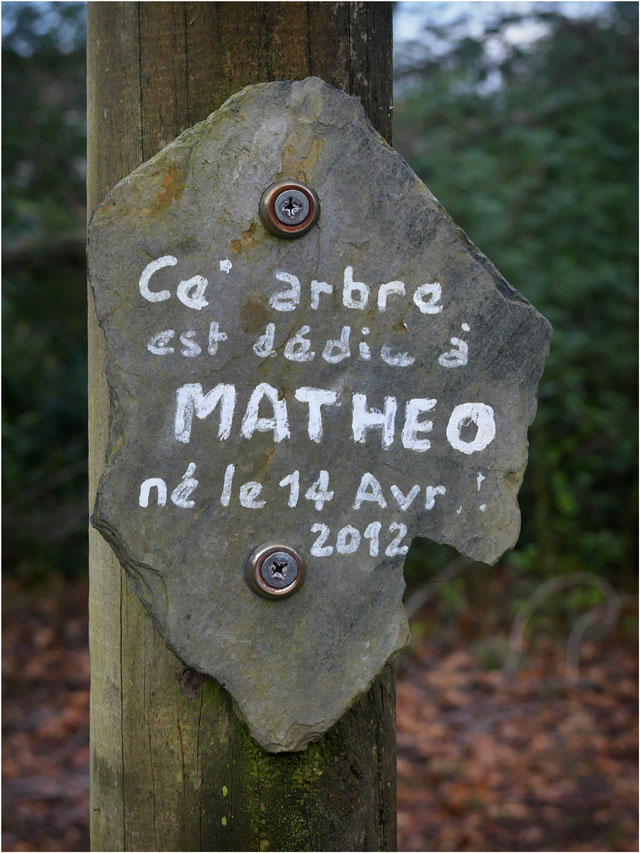 Ce' arbre
est dédié à
MATHEO
né le 14 Avril
2012